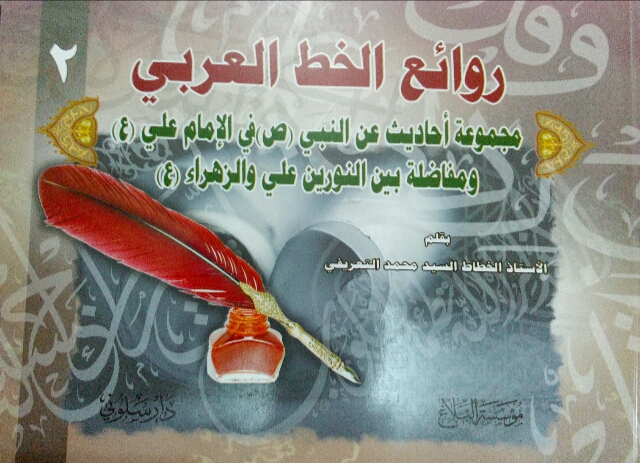 ٢
روائع الخط العربي
مجموعة أحاديث عن النبي (ص) في الإمام علي (ع)
ومفاضلة بين النورين علي والزهراء (ع)
بقلم
الأستاذ الخطاط السيد محمد التعريفي
مؤسسة البلاغ
دار سلوني